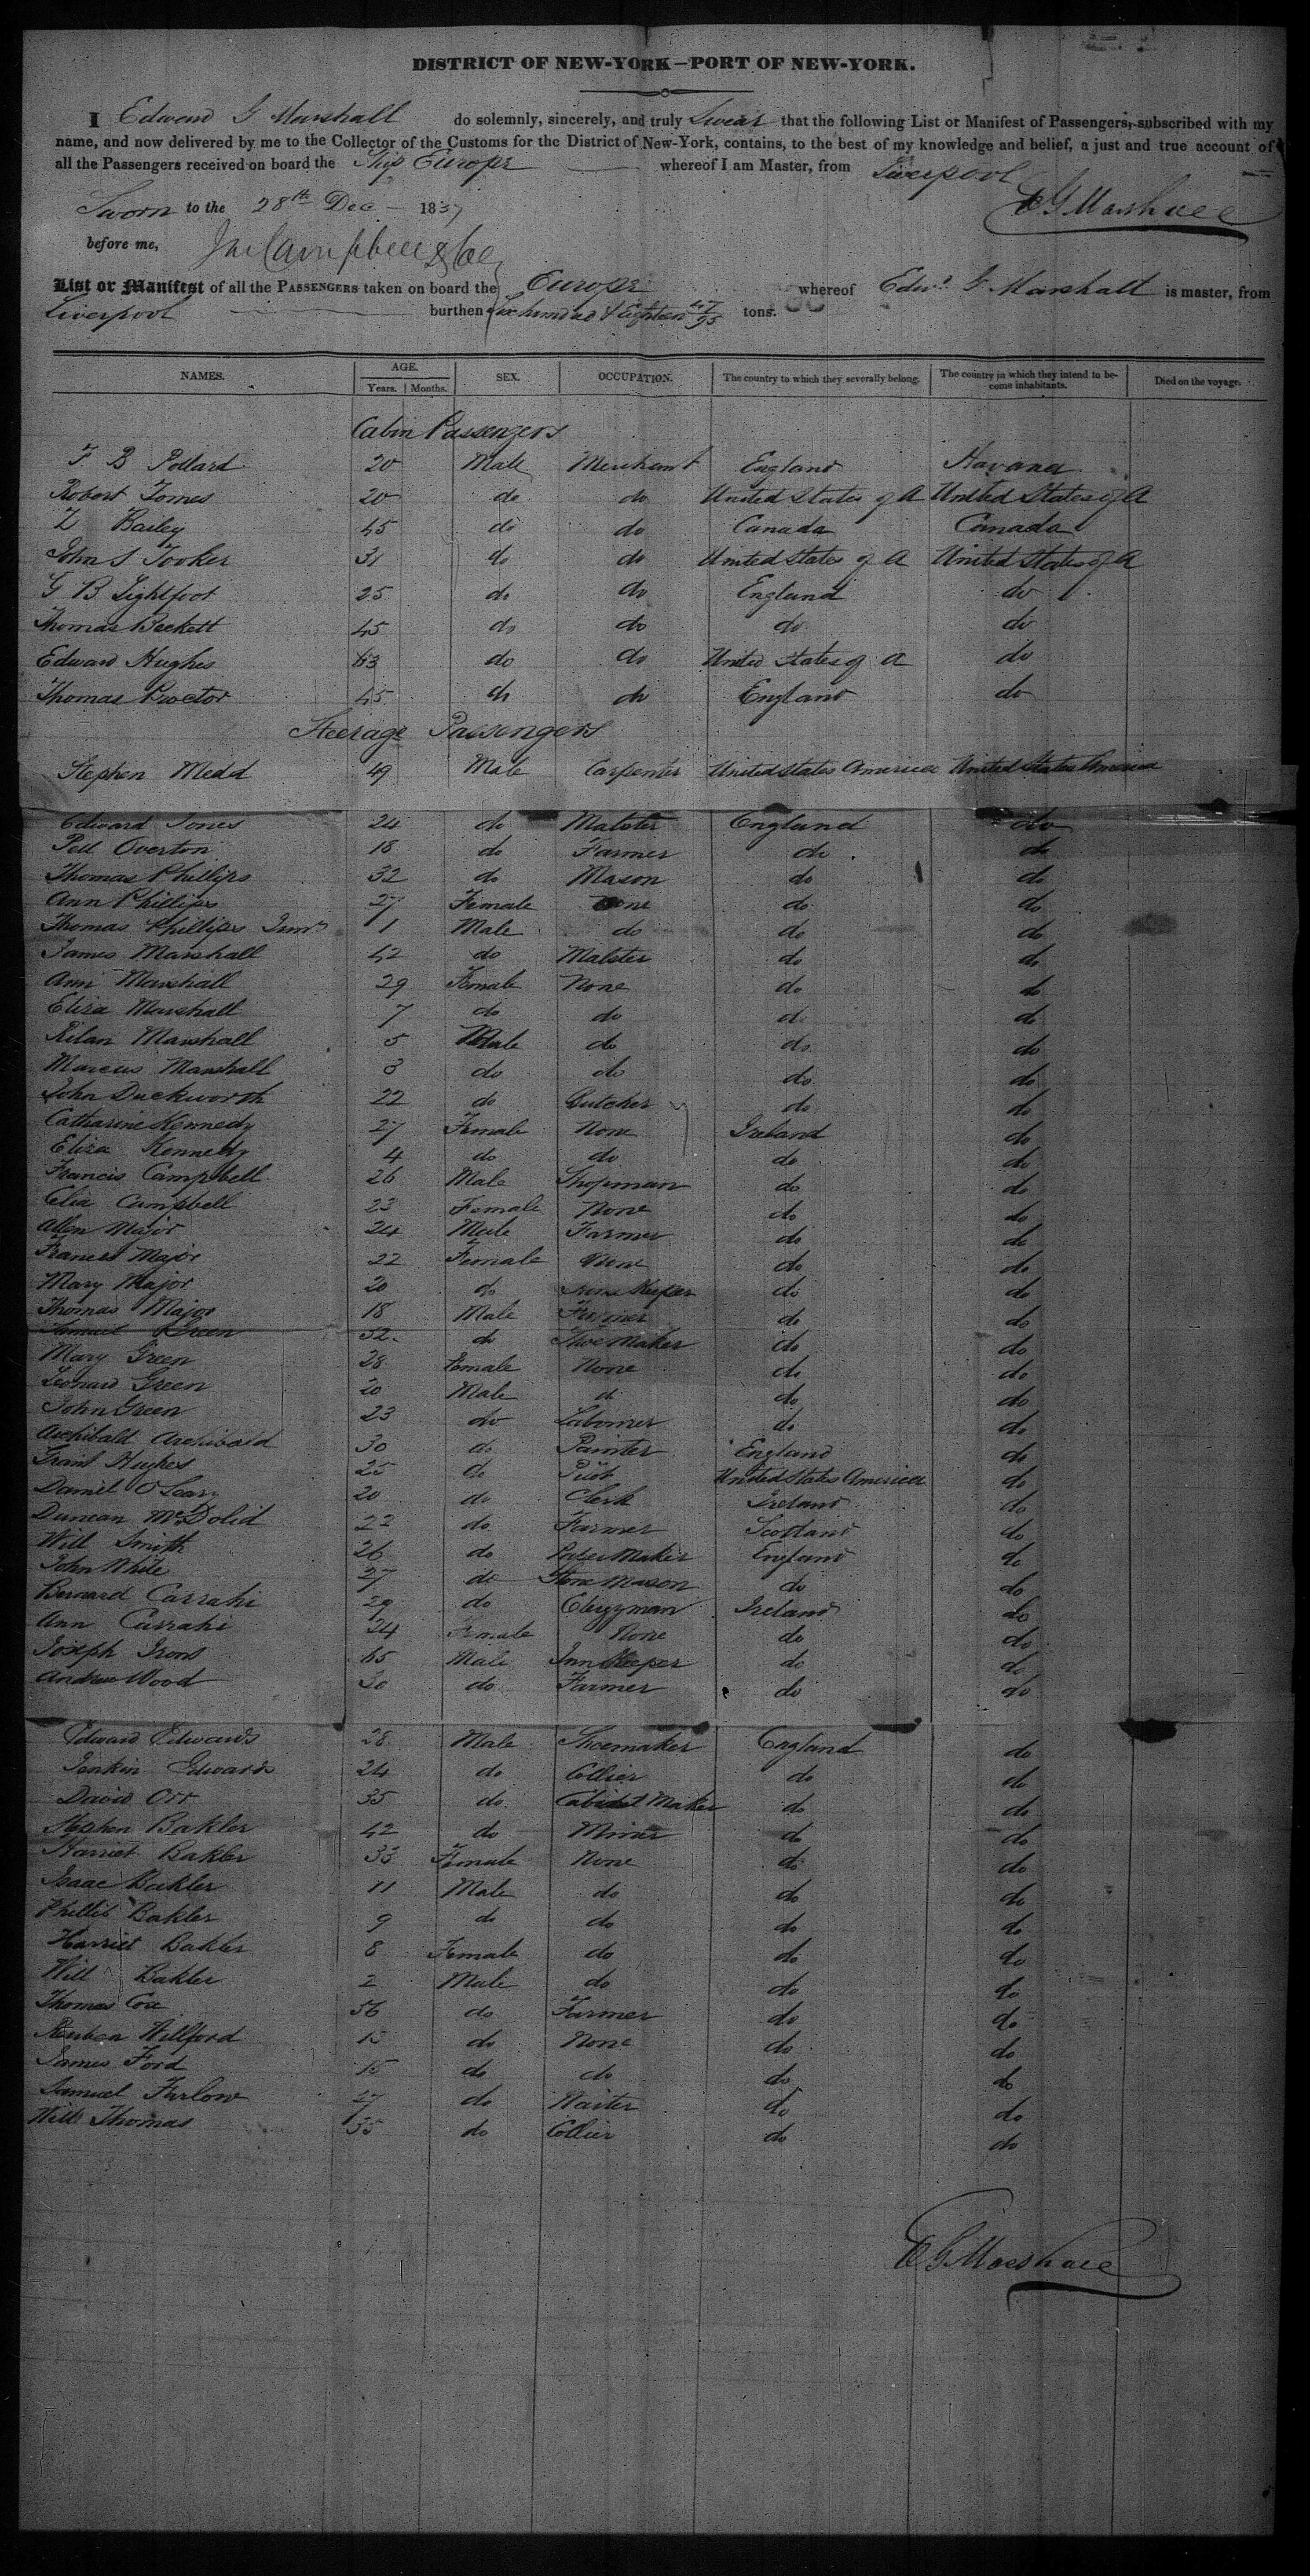 DISTRICT OF NEW-YORK—PORT OF NEW-YORK.
I Edward G Marshall do solemnly, sincerely, and truly Swear that the following List or Manifest of Passengers, subscribed with my
name, and now delivered by me to the Collector of the Customs for the District of New-York, contains, to the best of my knowledge and belief, a just and true account of
all the Passengers received on board the Ship Europe whereof I am Master, from Liverpool
Sworn to the 28th Dec 1837 E G Marshall
before me,
List or Manifest of all the PASSENGERS taken on board the Europe whereof Edwd G Marshall is master, from
Liverpool burthen Six hundred & Eighteen 47/95 tons.
NAMES. AGE. Years. Months. SEX. OCCUPATION. The country to which they severally belong. The country in which they intend to become inhabitants. Died on the voyage.
Cabin Passengers
F B Pollard 20 Male Merchant England Havana
Robert Tomes 20 do do United States of A United States of A
Z Barley 45 do do Canada Canada
John S Tooker 31 do do United States of A United States of A
G B Lightfoot 25 do do England do
Thomas Beckett 45 do do do do
Edward Hughes 63 do do United States of A do
Thomas Proctor 45 do do England do
Steerage Passengers
Stephen Medd 49 Male Carpenter United States America United States America
Edward Jones 24 do Malster England do
Pell Overton 18 do Farmer do do
Thomas Phillips 32 do Mason do do
Ann Phillips 27 Female None do do
Thomas Phillips Junr 1 Male do do do
James Marshall 42 do Malster do do
Ann Marshall 29 Female None do do
Eliza Marshall 7 do do do do
Rilan Marshall 5 Male do do do
Marcus Marshall 3 do do do do
John Duckworth 22 do Butcher do do
Catharine Kennedy 27 Female None Ireland do
Eliza Kennedy 4 do do do do
Francis Campbell 26 Male Shopman do do
Celia Campbell 23 Female None do do
Allen Major 24 Male Farmer do do
Frances Major 22 Female None do do
Mary Major 20 do Keeper do do
Thomas Major 18 Male Farmer do do
Samuel Green 32 do Shoe Maker do do
Mary Green 28 Female None do do
Leonard Green 20 Male do do do
John Green 23 do Labourer do do
Archibald Archibald 30 do Painter England do
Grant Hughes 25 do Pilot United States America do
Daniel O Leary 20 do Clerk Ireland do
Duncan McDolid 22 do Farmer Scotland do
Will Smith 26 do Paper Maker England do
John White 27 do Stone Mason do do
Bernard Carrahi 29 do Clergyman Ireland do
Ann Carrahi 24 Female None do do
Joseph Irons 65 Male Inn Keeper do do
Andrew Wood 30 do Farmer do do
Edward Edwards 28 Male Shoemaker England do
Jenkin Edwards 24 do Collier do do
David Orr 35 do Cabinet Maker do do
Stephen Bakler 42 do Miner do do
Harriet Bakler 33 Female None do do
Isaac Bakler 11 Male do do do
Phillis Bakler 9 do do do do
Harriet Bakler 8 Female do do do
Will Bakler 2 Male do do do
Thomas Cox 56 do Farmer do do
Reuben Willford 13 do None do do
James Ford 15 do do do do
Samuel Furlow 27 do Waiter do do
Will Thomas 35 do Collier do do
E G Marshall